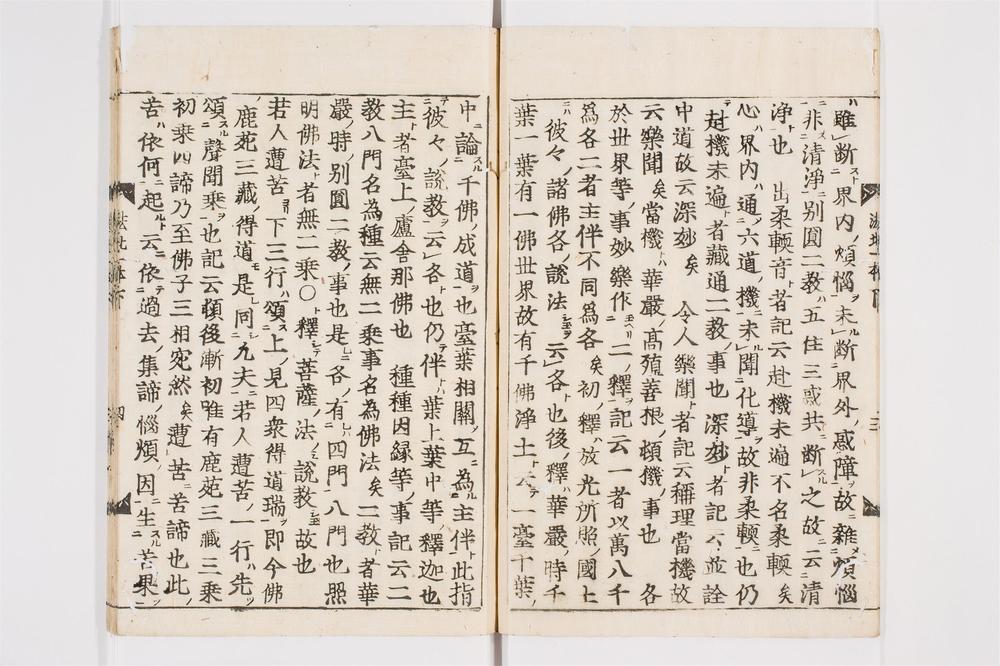 雖断界内煩惱未断界外惑障故雜煩惱
非清淨別圓二教五住三惑共断之故云清
淨也 出柔輭音者記云赴機未遍不名柔輭矣
心界内通六道機未聞化導故非柔輭也仍
赴機未遍者藏通二教事也 深妙者記云並詮
中道故云深妙矣 令人樂聞者記云稱理當機故
云樂聞矣當機華嚴高殖善根頓機事也 各
於世界等事妙樂作二釋記云一者以萬八千
爲各二者主伴不同爲各矣初釋放光所照國土
彼々諸佛各說法云各也後釋華嚴時千
葉一葉有一佛世界故有千佛淨土一臺千葉
中論千佛成道也臺葉相關互為主伴此指
彼々說教云各也仍伴葉上葉中等釋迦也
主者臺上盧舍那佛也 種種因縁等事記云二
教八門名為種云無二乗事名為佛法矣二教者華
嚴時別圓二教事也是各有四門八門也照
明佛法者無二乗〇釋菩薩法說教故也
若人遭苦下三行頌上見四衆得道瑞即今佛
鹿苑三藏得道是同九夫若人遭苦一行先
頌聲聞乗也記云頓後漸初唯有鹿苑三藏三乗
初乗四諦乃至佛子三相宛然矣遭苦苦諦也此
苦依何起云依過去集諦惱煩因生苦果